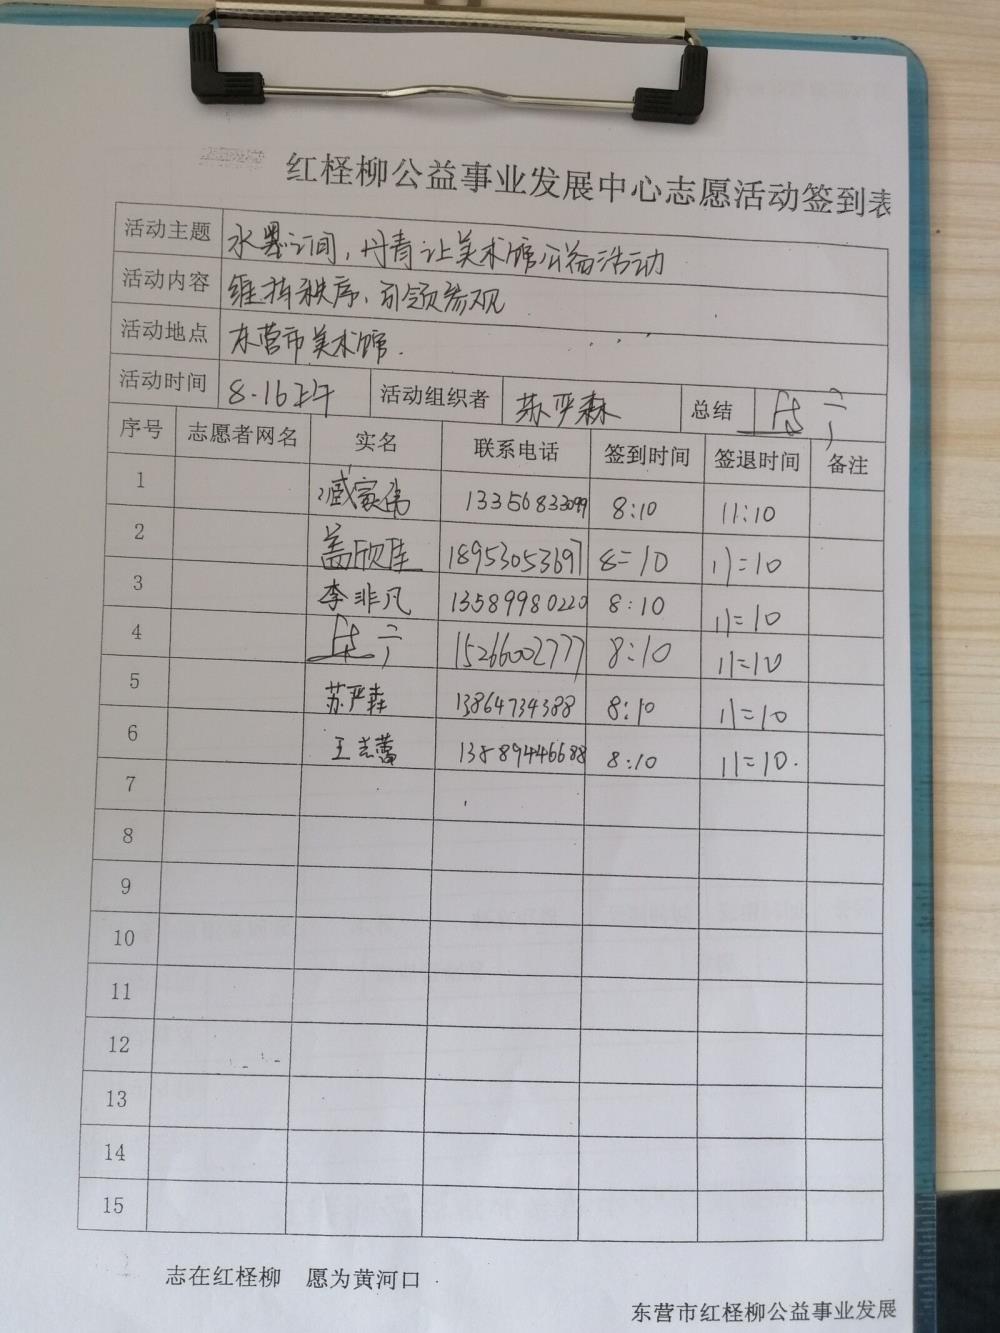 红柽柳公益事业发展中心志愿活动签到表
活动主题 水墨之间，丹青让美术馆公益活动
活动内容 维持秩序，引领参观
活动地点 东营市美术馆.
活动时间 8.16上午 活动组织者 苏严森 总结
序号 志愿者网名 实名 联系电话 签到时间 签退时间 备注
1 臧家伟 13356833099 8:10 11:10
2 盖欣佳 18953053697 8=10 11=10
3 李非凡 13589980220 8:10 11=10
4 15266002777 8:10 11=10
5 苏严森 13864734388 8:10 11=10
6 王志蕾 13589446688 8:10 11=10.
7
8
9
10
11
12
13
14
15
志在红柽柳 愿为黄河口
东营市红柽柳公益事业发展